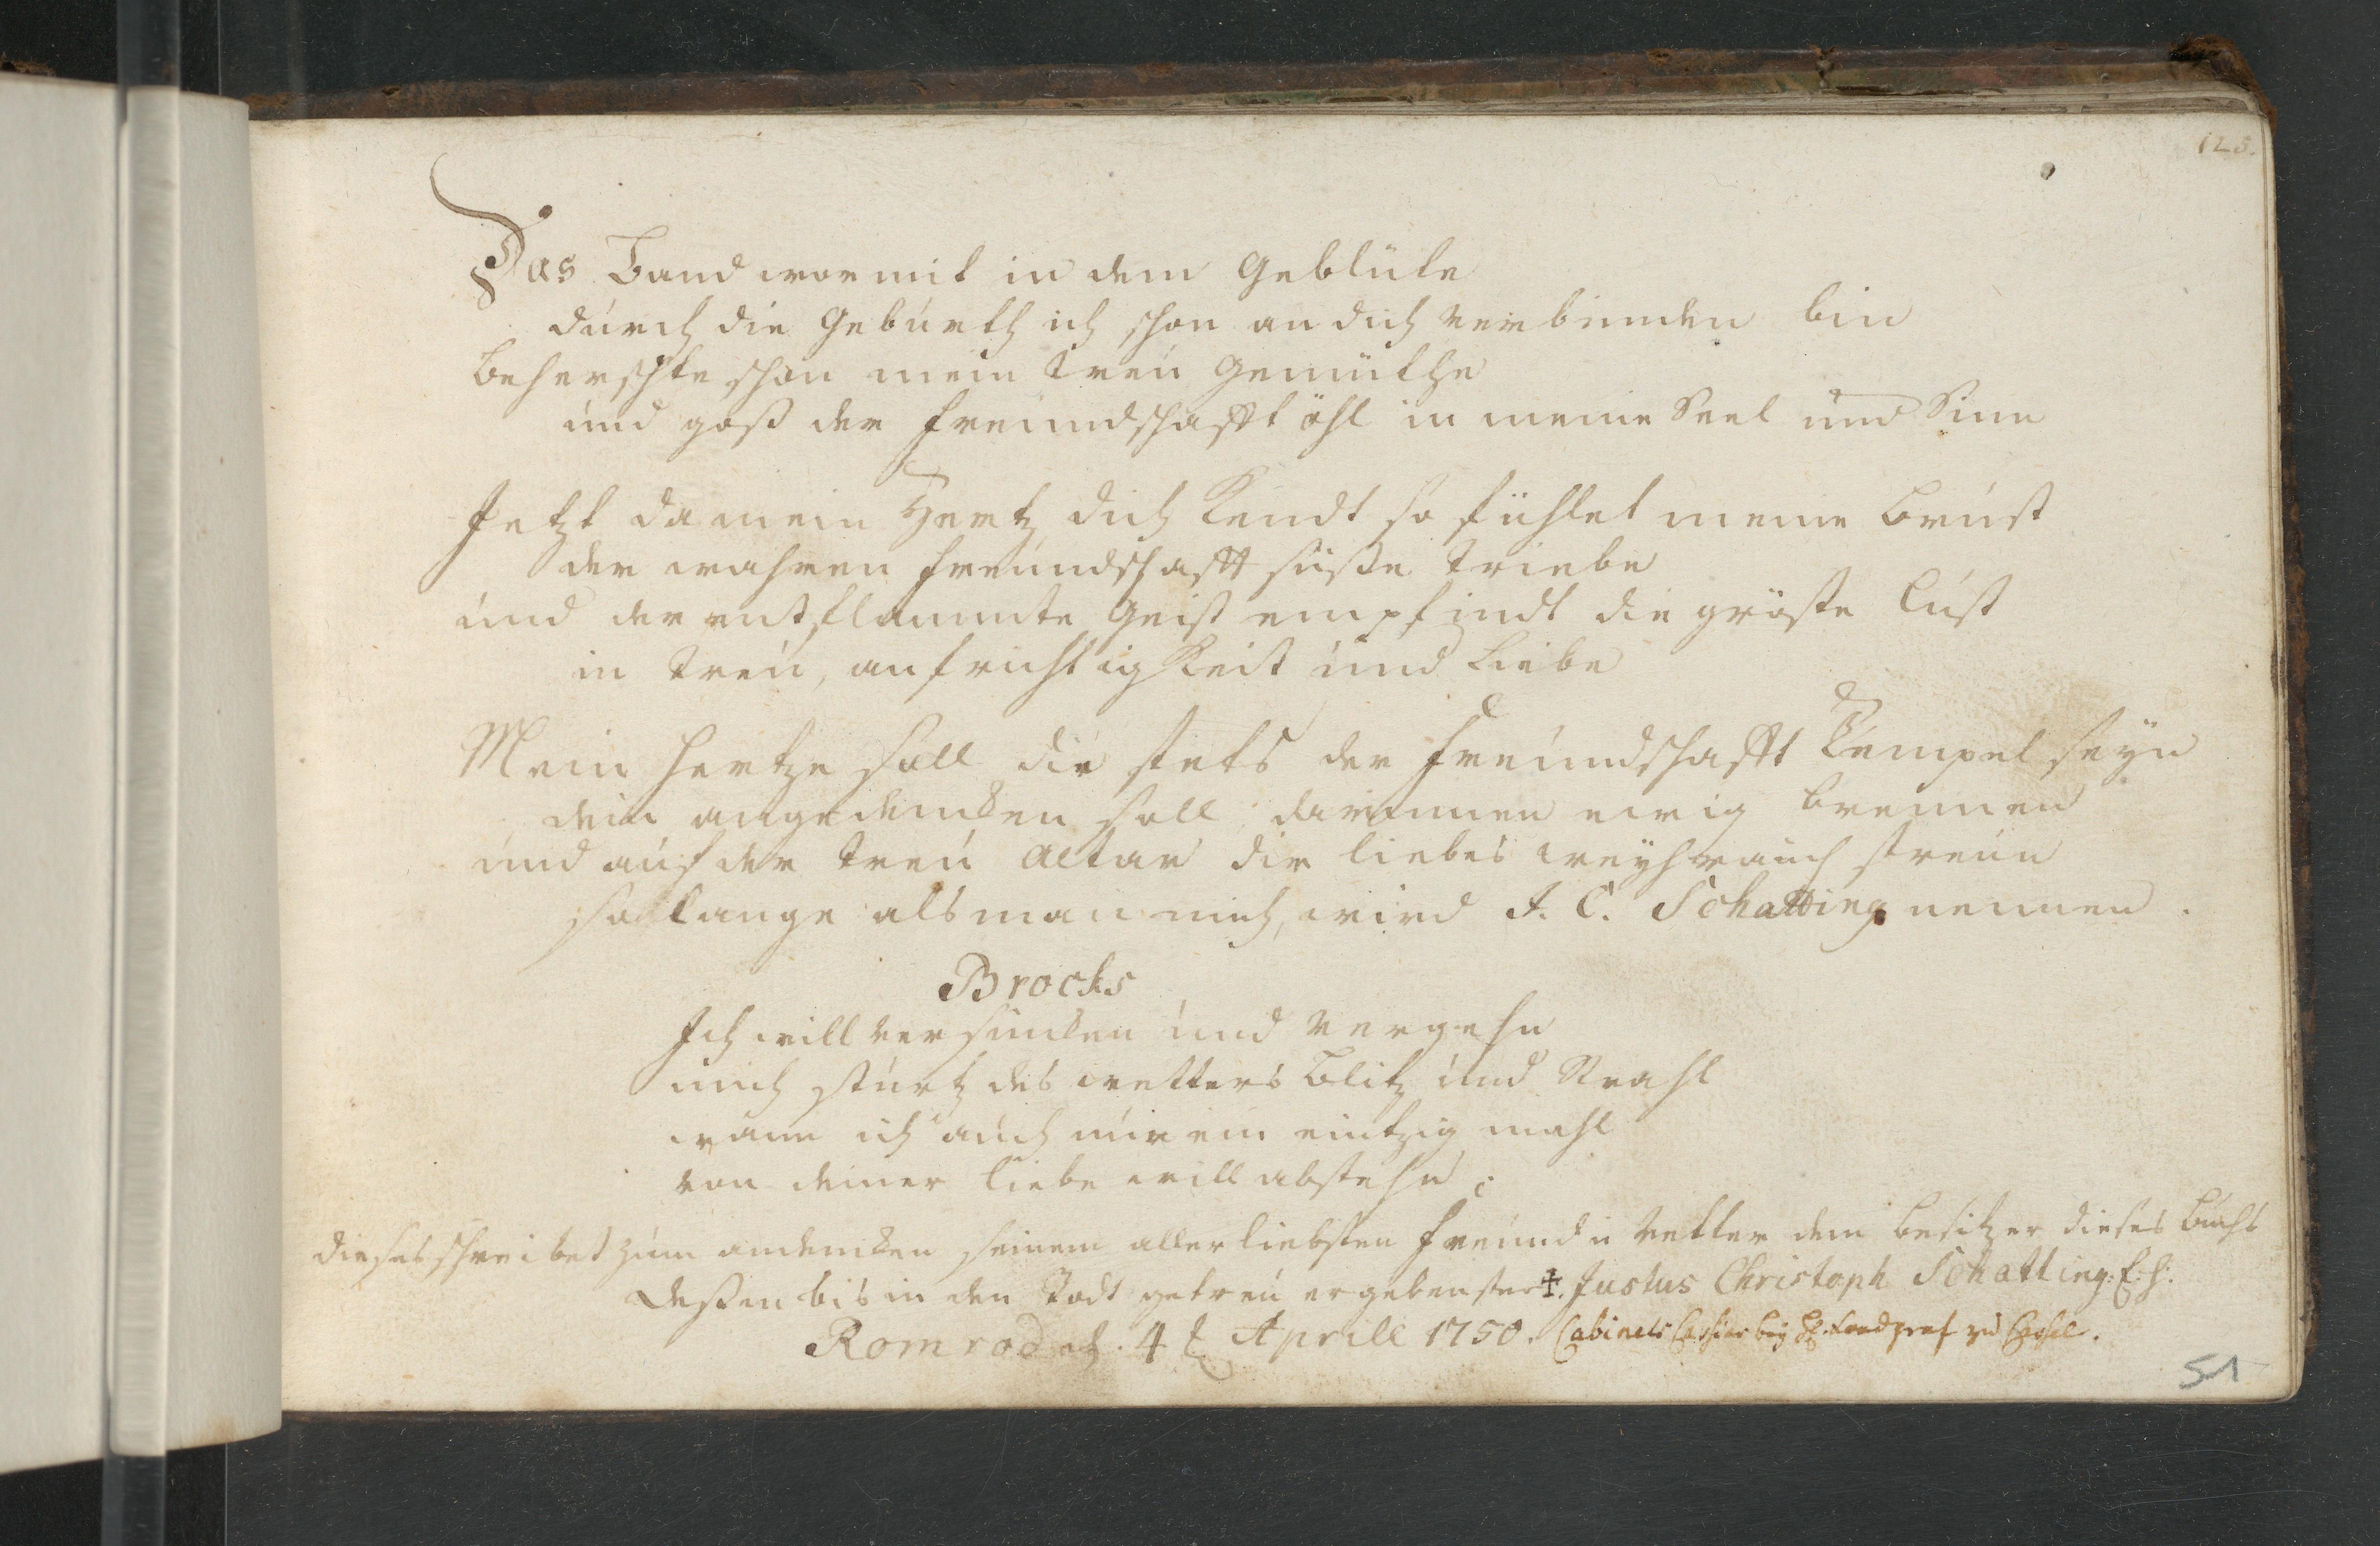 125.
Das Band wormit in dem Geblüte
durch die Geburth ich schon an dich verbunden bin
Beherschte schon mein treu Gemüthe
und goß der Freundschafft öhl in meine Seel und Sinn
Jetzt da mein Hertz dich kendt so fühlet meine Brust
der wahren Freundschafft süße triebe
und der entflammte Geist empfindt die gröste Lust
in treu, aufrichtigkeit und Liebe
Mein Hertze soll dir stets der Freundschafft Tempel seyn
dein angedencken soll darinnen ewig brennen
und auf der treu Altar dir liebes weyhrauch streun
so lange als man mich, wird J. C. Schatting nennen.
Brocks
Ich will versincken und vergehn
mich stürtz des wetters Blitz und Strahl
wann ich auch nur ein eintzig mahl
von deiner Liebe will abstehn;
dieses schreibet zum andencken seinem allerliebsten Freund u Vetter dem besitzer dieses Buchs
deßen bis in den Todt getreu ergebenster Justus Christoph Schatting:
Romrod d. 4 t Aprill 1750. Cabinets Cassier bey H. Landgraf zu Cassel.
51